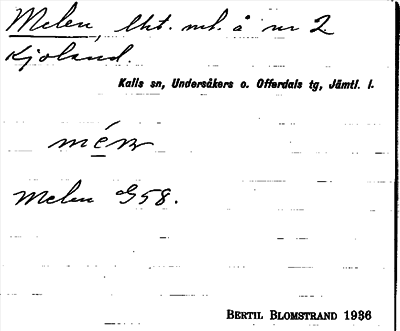 Melen, lht. ml. å nr 2
Kjoland.
Kalls sn, Undersåkers o. Offerdals tg, Jämtl. l.
Melen G58.
BERTIL BLOMSTRAND 1936